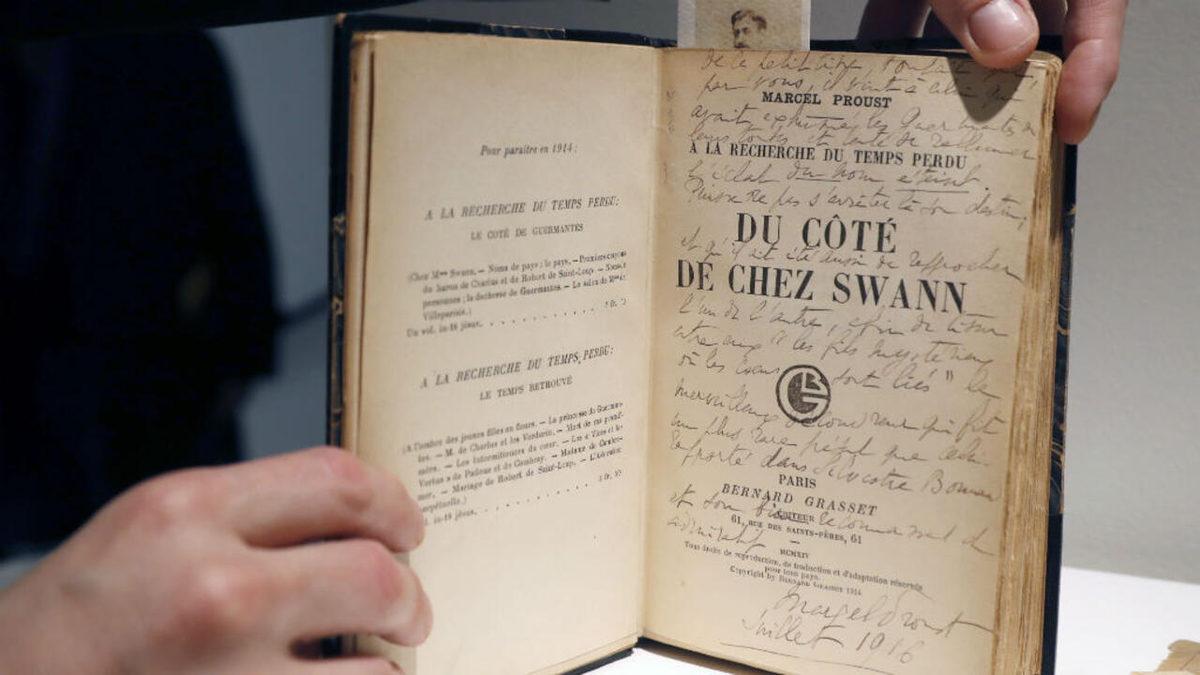 Pour paraître en 1914 :
A LA RECHERCHE DU TEMPS PERDU:
LE COTÉ DE GUERMANTES
(Chez Mme Swann. — Noms de pays : le pays. — Premiers crayons
du baron de Charlus et de Robert de Saint-Loup. — Noms de
personnes : la duchesse de Guermantes. — Le salon de Mme de
Villeparisis.)
Un vol. in-18 jésus.
A LA RECHERCHE DU TEMPS PERDU:
LE TEMPS RETROUVÉ
(A l'ombre des jeunes filles en fleurs. — La princesse de Guerman-
tes. — M. de Charlus et les Verdurin. — Mort de ma grand'-
mère. — Les Intermittences du cœur. — Les « Vices et les
Vertus » de Padoue et de Combray. — Madame de Cambre-
mer. — Mariage de Robert de Saint-Loup. — L'Adoration
perpétuelle.)
vol. in-18 jésus.
de ce petit
par vous, il vient à celui qui
MARCEL PROUST
avait exhumé les Guermantes de
leurs tombes et tenté de rallumer
A LA RECHERCHE DU TEMPS PERDU
l'éclat du nom éteint.
Puisse ne pas s'arrêter là son destin,
DU CÔTÉ
et qu'il ait été aussi de rapprocher
DE CHEZ SWANN
l'un de l'autre, afin de tisser
entre eux " les fils mystérieux
où les cœurs sont liés " le
merveilleux donateur qui fit
un plus rare présent que celui
PARIS
BERNARD GRASSET
ÉDITEUR
et son bien reconnaissant
61, RUE DES SAINTS-PÈRES, 61
MCMXIV
Tous droits de reproduction, de traduction et d'adaptation réservés
pour tous pays.
Copyright by BERNARD GRASSET 1914
Marcel Proust
Juillet 1916